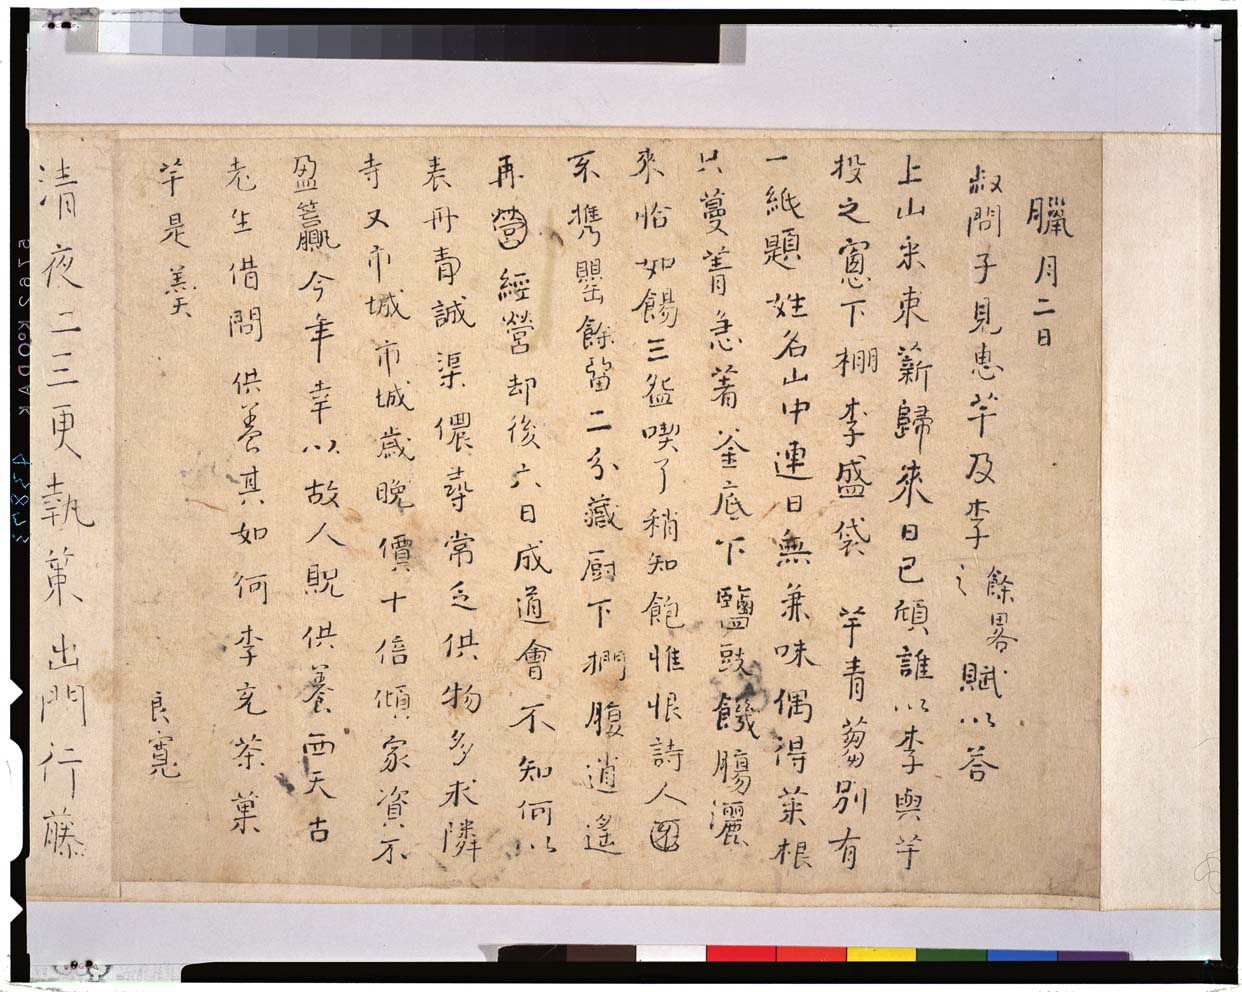 臘月二日
叔問子見惠芋及李
餘畧之賦以答
上山采束薪歸來日已傾誰以李與芋
投之窻下棚李盛袋芋青蒭別有
一紙題姓名山中連日無兼味偶得菜根
只蔓菁急著釜底下鹽豉饑腸灑
來恰如餳三盌喫了稍知飽惟恨詩人
不携罌餘留二分藏厨下捫腹逍遙
再營經營却後六日成道會不知何以
表丹青誠渠儂尋常乏供物多求隣
寺又市城市城歳晩價十倍傾家資不
盈籝今年幸以故人貺供養西天古
老生借問供養其如何李充茶菓
芋是羹
良寛
清夜二三更執策出門行藤